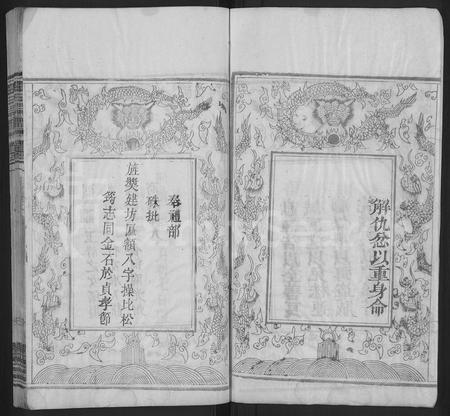 解仇忿以重身命
奉禮部
硃批
旌奬建坊匾額入字操比松
筠志同金石於貞孝節